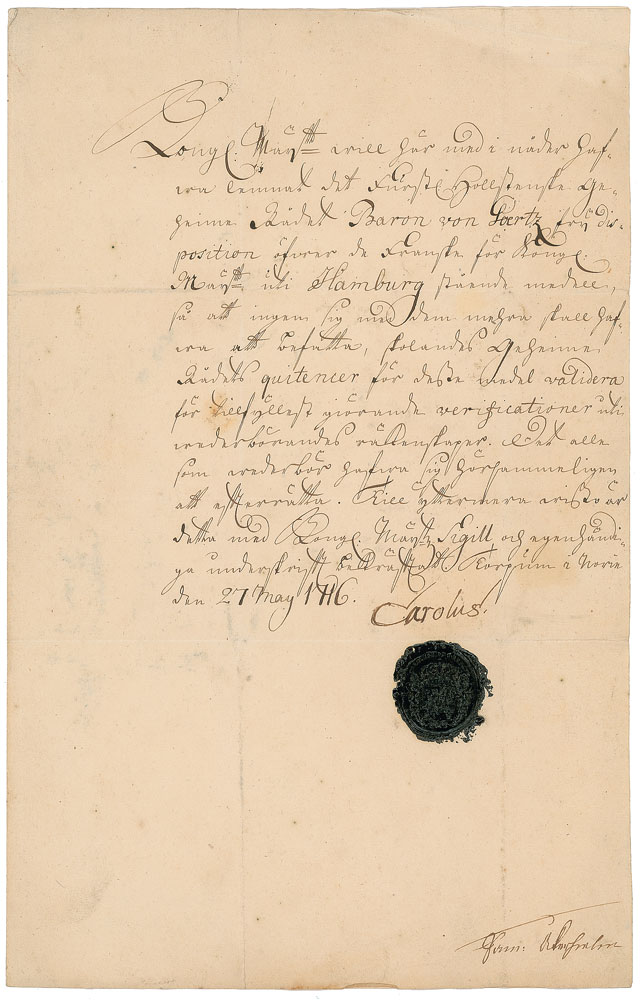 Kongl. Maÿtt will här med i nåder haf-
wa lemnat det Fürstl. Hollstenske Ge-
heime Rådet Baron von Goertz frÿ dis-
position öfwer de Franske för Kongl.
Maÿtt uti Hamburg stående medell,
så att ingen sig med dem mehra skall haf-
wa att befatta, skolandes Geheime
Rådets quitencer för desse medel validera
för tillfÿllest giörande verificationer uti
wederbörandes räkenskaper. Det alle
som wederbör hafwa sig hörsammeligen
att efterrätta. Till ÿttermera wisso är
detta med Kongl. Maÿtz Sigill och egenhändi-
ga underskrift bekräfftadt. Torpum i Norie
den 27 May 1716.
Carolus.
Sam: